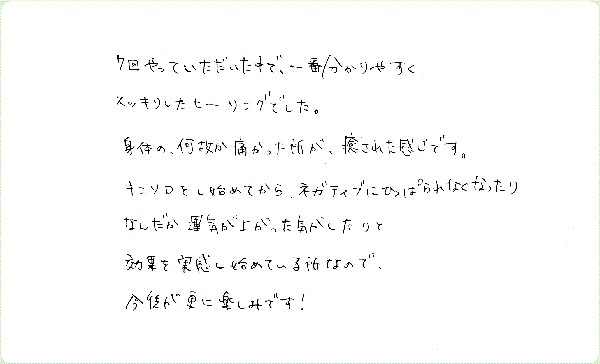 7回やっていただいた中で、一番分かりやすく
スッキリしたヒーリングでした。
身体の、何故か痛かった所が、癒された感じです。
キンソロをし始めてから、ネガティブにひっぱられなくなったり
なんだか運気が上がった気がしたりと
効果を実感し始めている所なので、
今後が更に楽しみです!